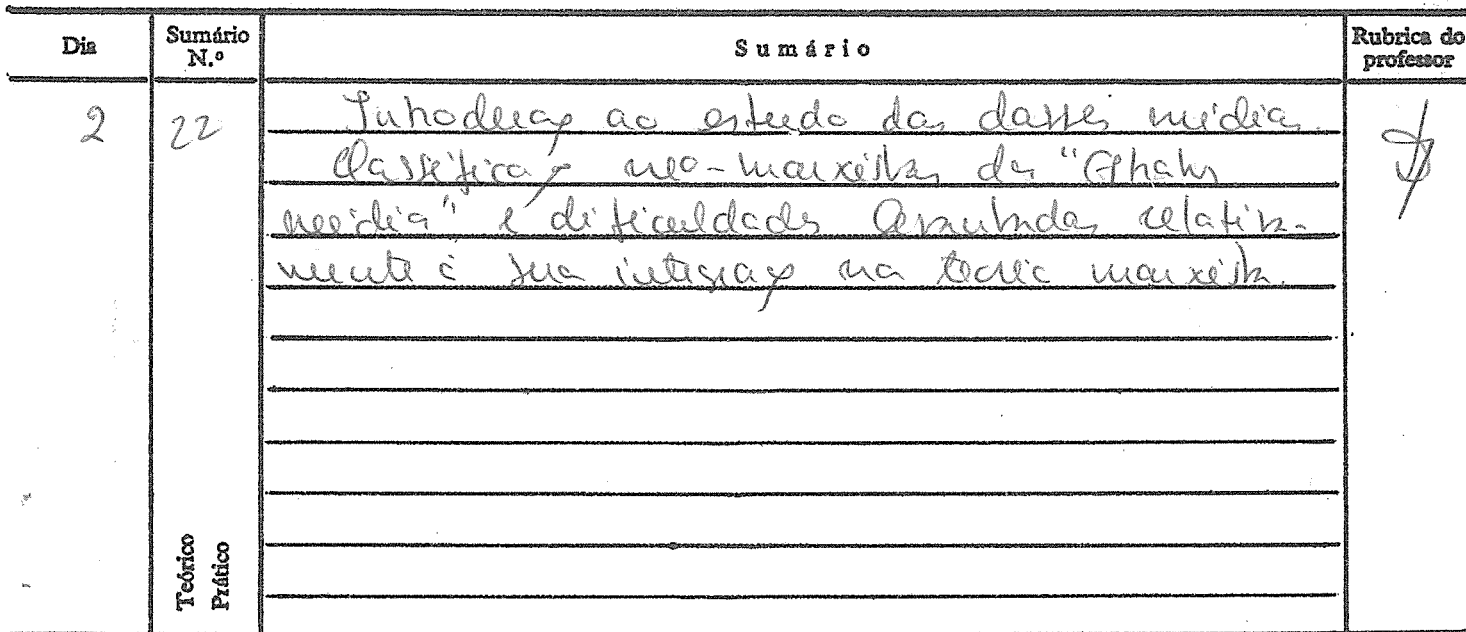 Dia
Sumário N.º
Sumário
Rubrica do professor
2
22
Introdução ao estudo das classes médias.
Classificação neo-marxista dos "Estratos
médios" e dificuldades relativa-
mente à sua integração na teoria marxista.
Teórico
Prático